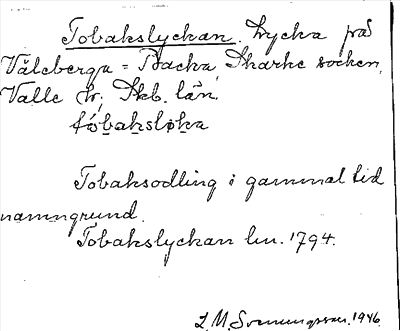 Tobakslyckan. Lycka på
Våleberga = Backa, Skarke socken,
Valle hd, Skb. län.
tóbaksløka
Tobaksodling i gammal tid
namngrund.
Tobakslyckan lm. 1794.
L. M. Svenungsson. 1946.